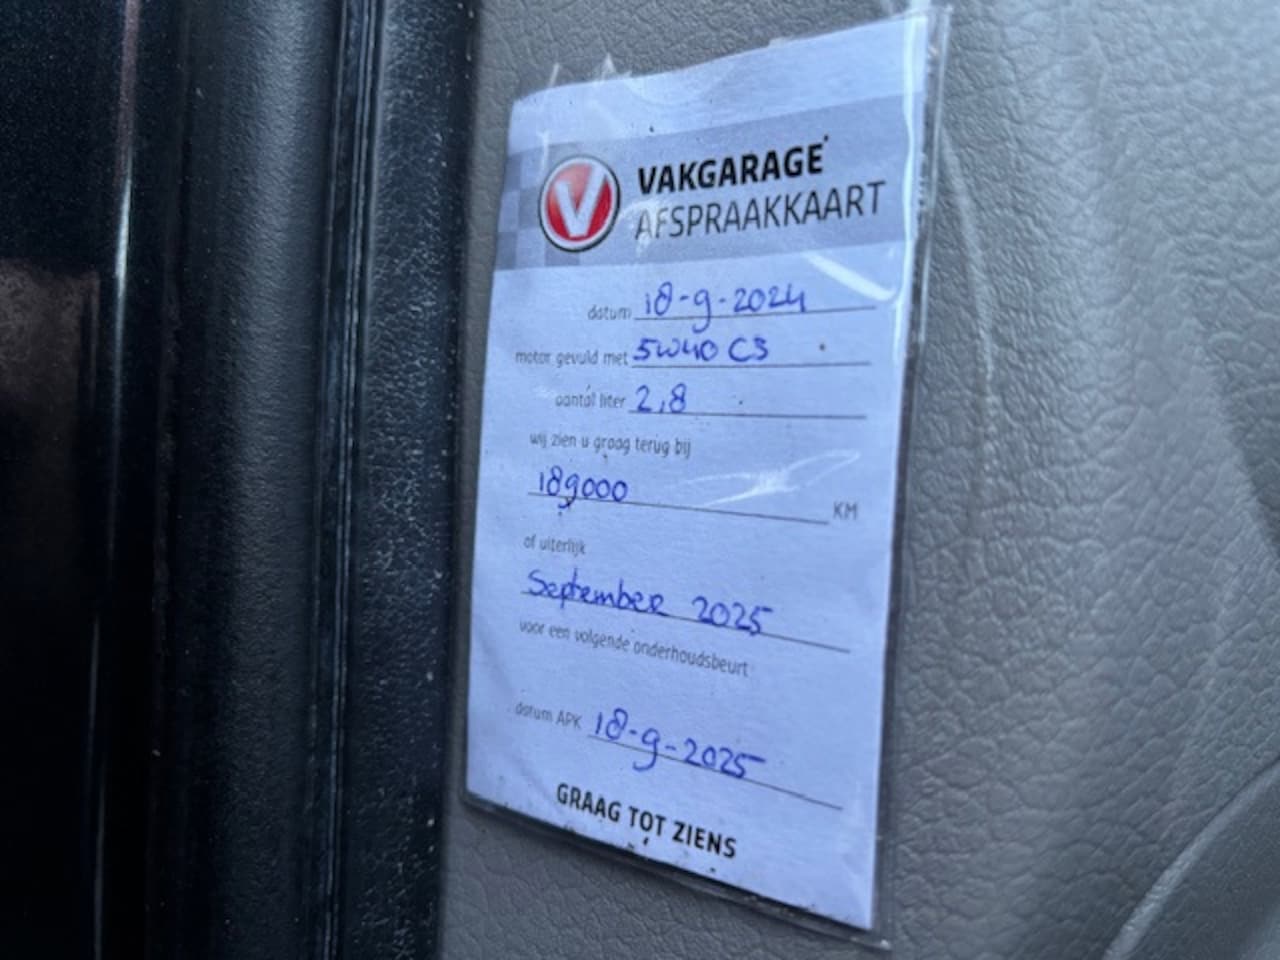 V
VAKGARAGE
AFSPRAAKKAART
datum 18-9-2024
motor gevuld met 5W40 C3
aantal liter 2,8
wij zien u graag terug bij
189000 KM
of uiterlijk
September 2025
voor een volgende onderhoudsbeurt
datum APK 18-9-2025
GRAAG TOT ZIENS